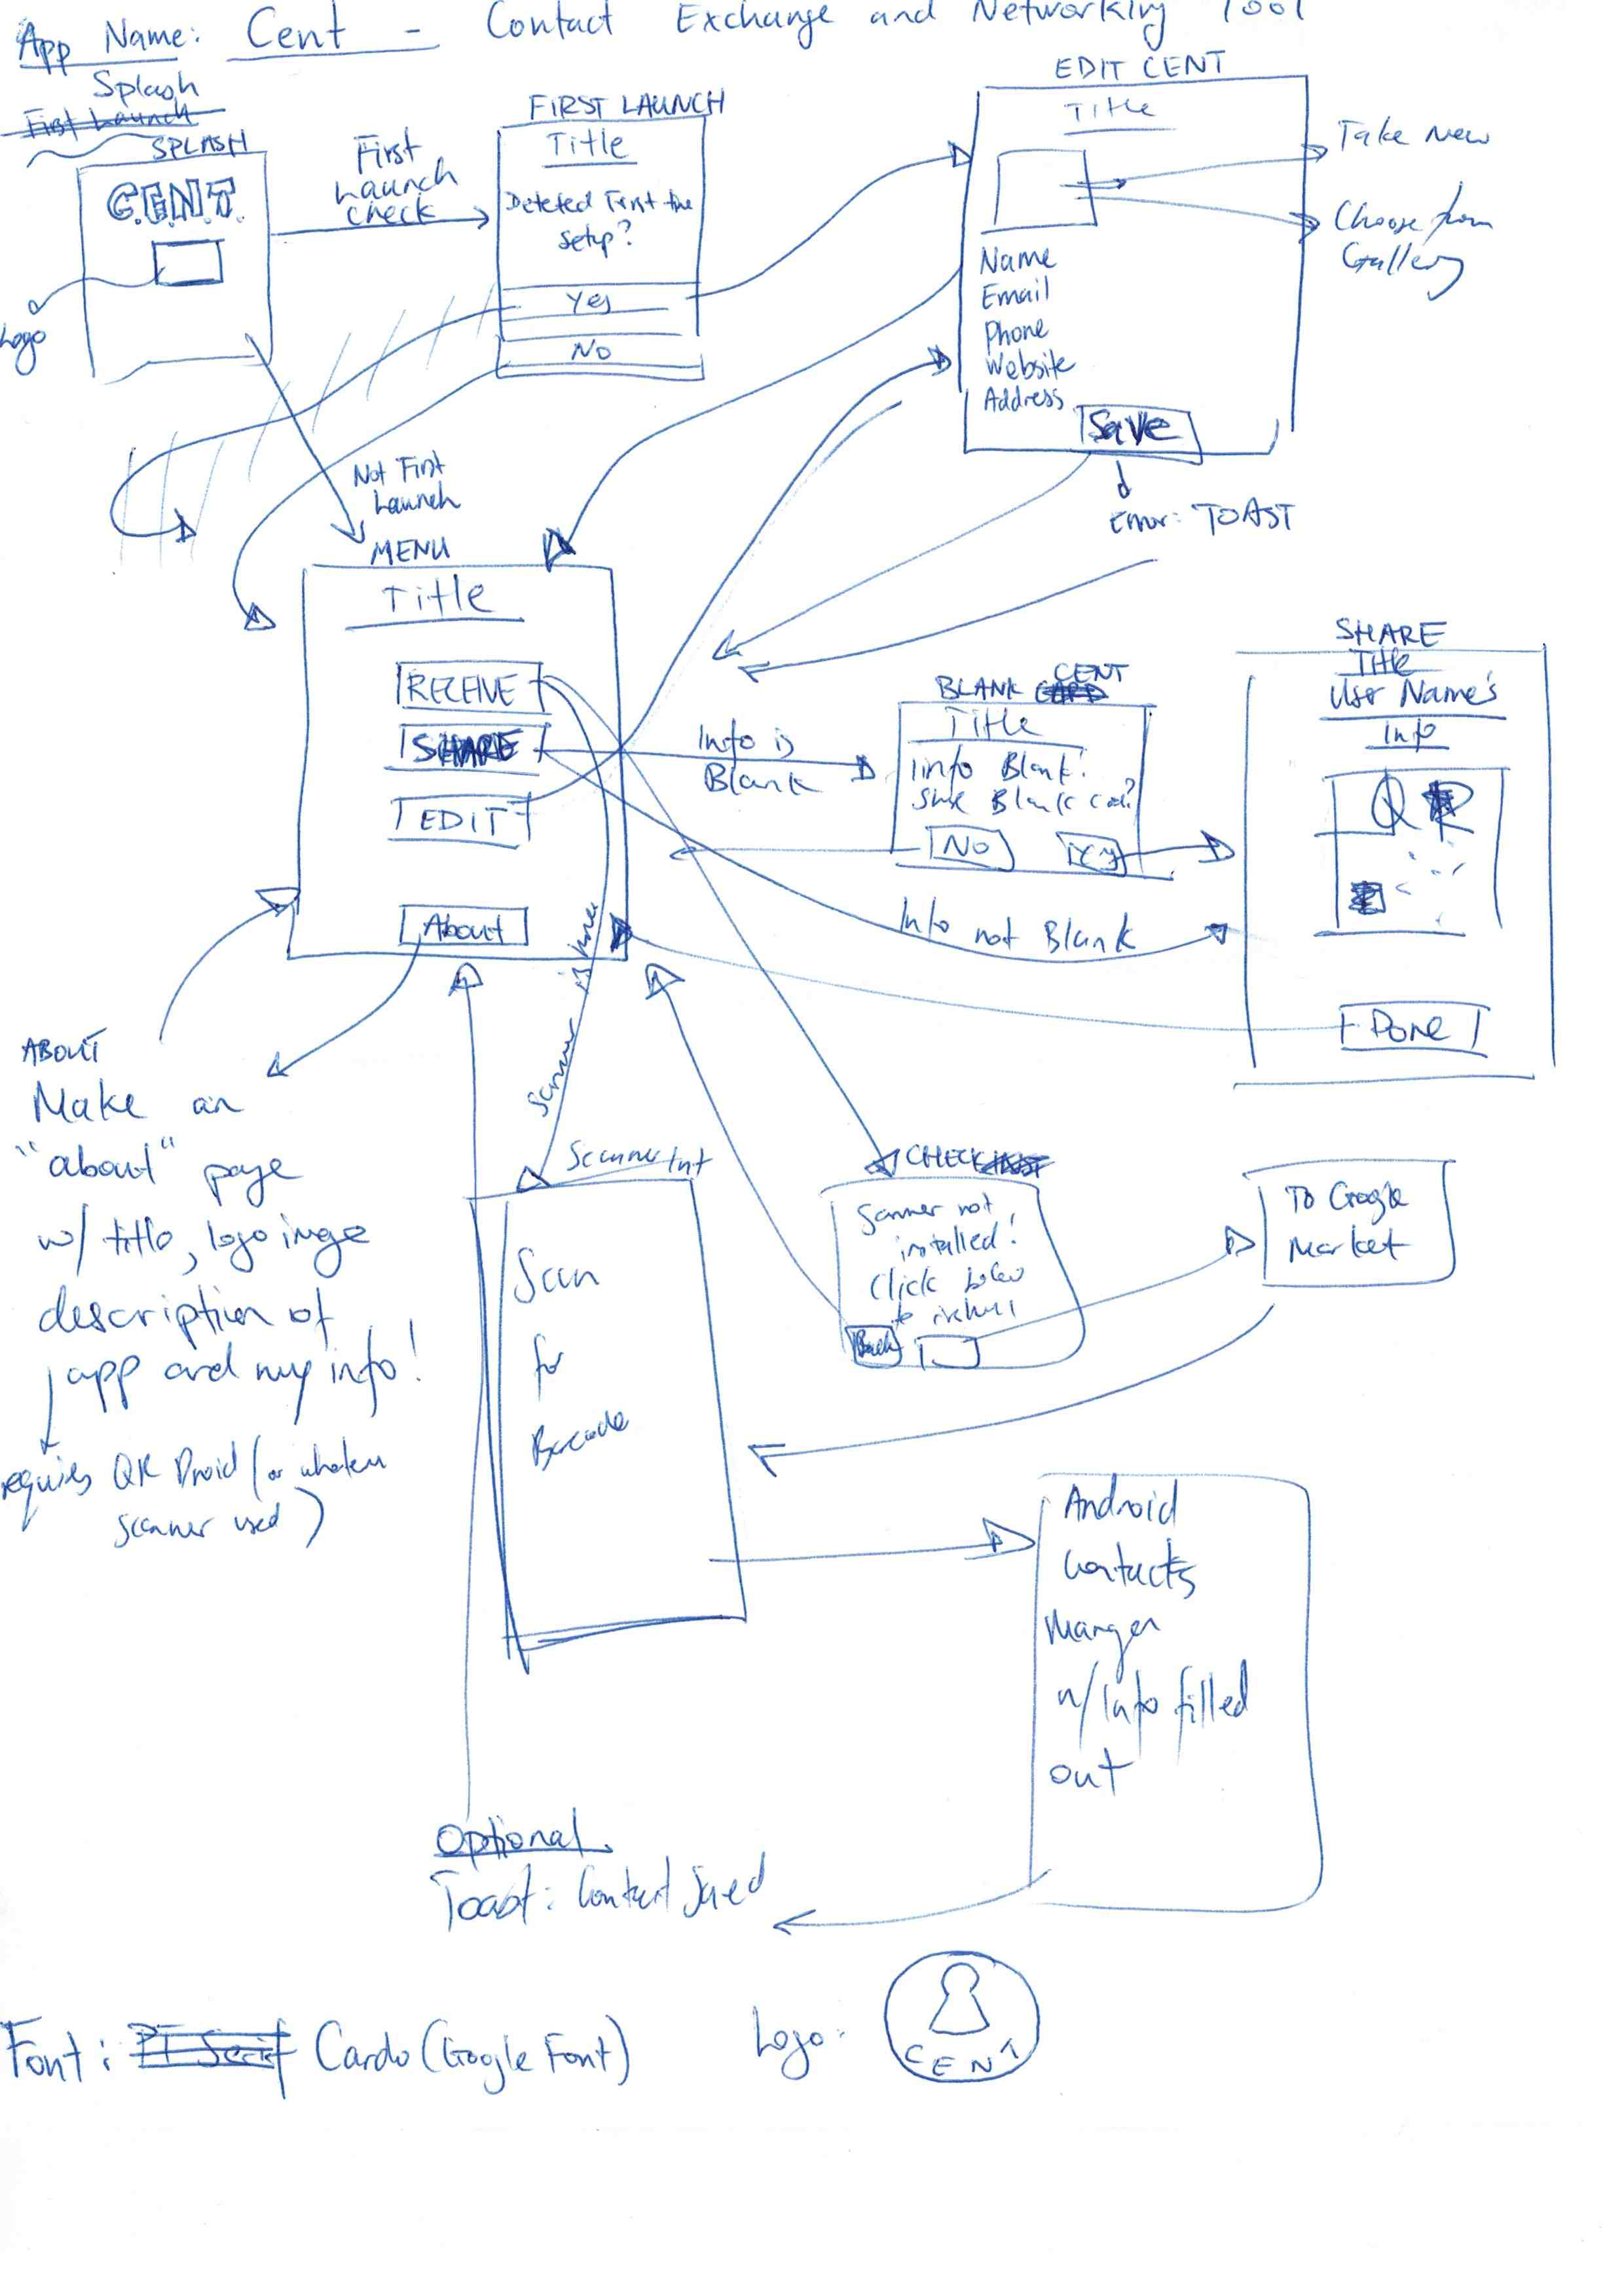 App Name: Cent - Contact Exchange and Networking Tool
Splash
First Launch
SPLASH
C.E.N.T.
Logo
First
Launch
check
FIRST LAUNCH
Title
Deteted First time
setup?
Yes
No
EDIT CENT
Title
Name
Email
Phone
Website
Address
Save
Take New
Choose from
Gallery
Error: TOAST
Not First
Launch
MENU
Title
RECEIVE
SHARE
EDIT
About
Info is
Blank
BLANK CARD CENT
Title
info Blank!
Blank
No
Yes
Info not Blank
SHARE
Title
User Name's
Info
QR
Done
ABOUT
Make an
"about" page
w/ title, logo image
description of
app and my info!
requires QR Droid (or whatever
scanner used)
Scanner
Scanner Int
Scan
for
Barcode
CHECK
Scanner not
installed!
Click below
to install
Back
To Google
Market
Android
Contacts
Manger
w/ Info filled
out
Optional
Toast: Contact Saved
Font: PT Serif Cardo (Google Font)
Logo:
CENT